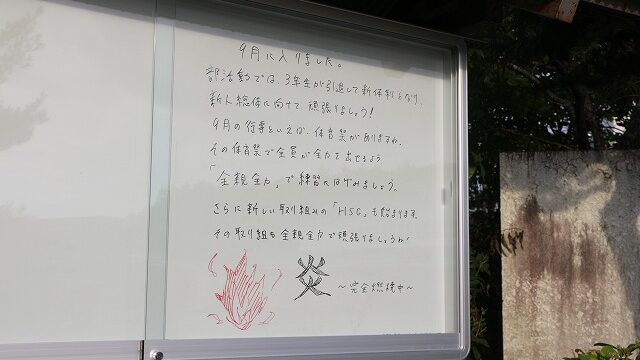 9月に入りました。
部活動では、3年生が引退して新体制となり、
新人総体に向けて、頑張りましょう!
9月の行事といえば、体育祭がありますね。
その体育祭で全員が全力を出せるよう
「全親全力」で練習にはげみましょう。
さらに新しい取り組みの「HSG」も始まります。
その取り組も全親全力で頑張りましょうね!
炎
～完全燃焼中～